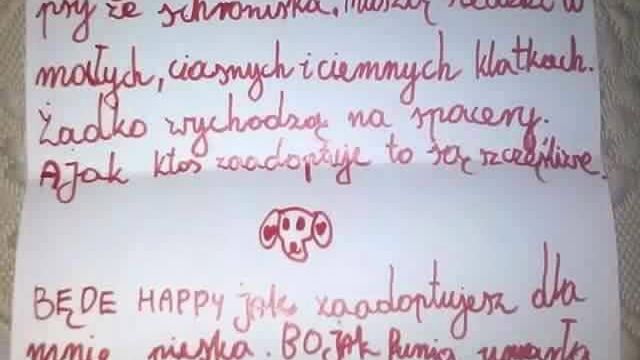 psy że schroniska. Muszą siedzieć w
małych, ciasnych i ciemnych klatkach.
Żadko wychodzą na spacery.
A jak ktoś zaadoptuje to są szczęśliwe.
BĘDE HAPPY jak zaadoptujesz dla
mnie pieska. BO, jak Punia umarła